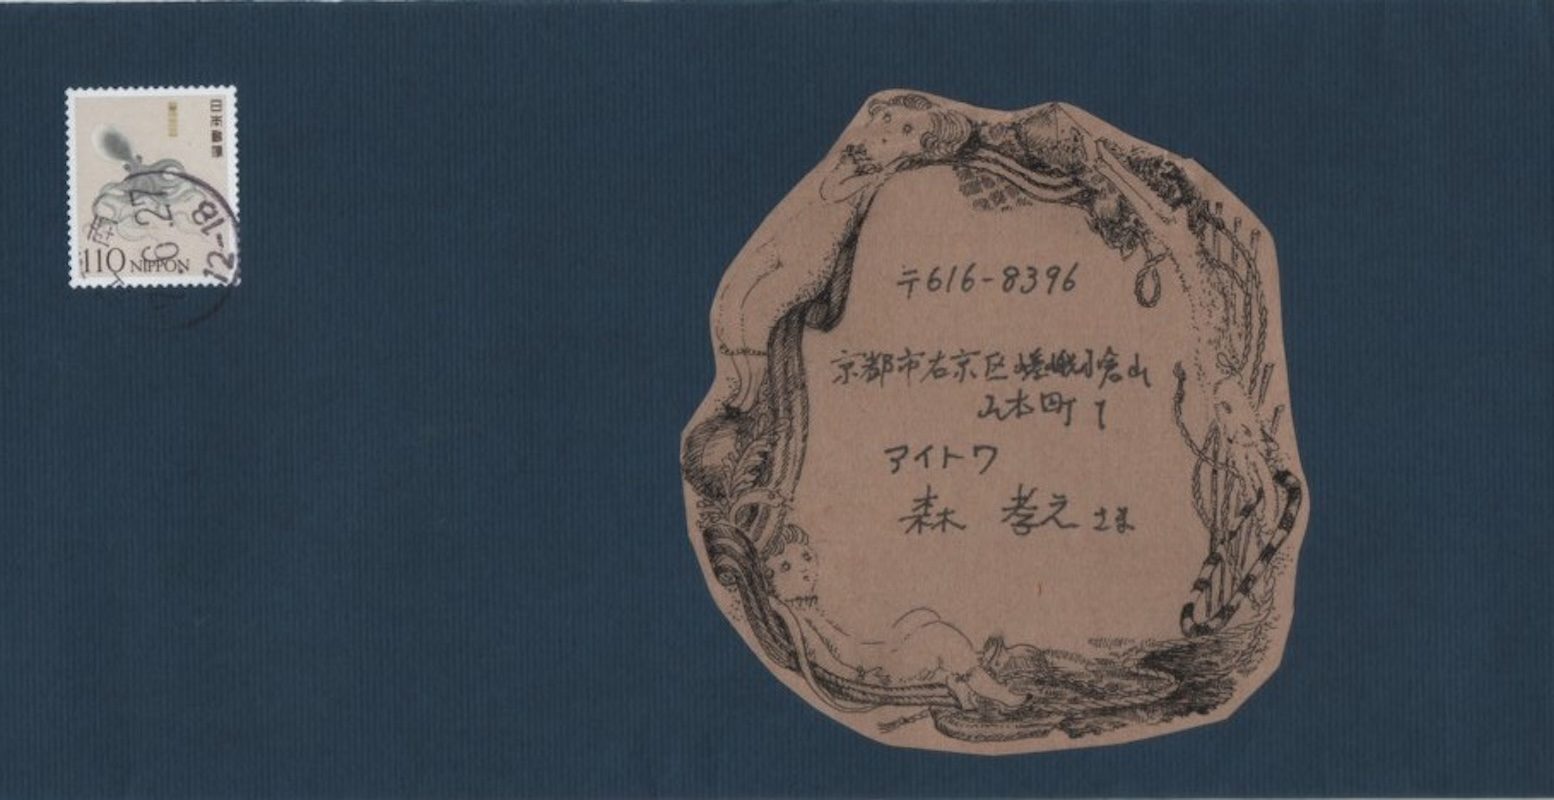 日本郵便
110 NIPPON
6.27
12-18
〒616-8396
京都市右京区嵯峨小倉山
山本町1
アイトワ
森 孝之さま